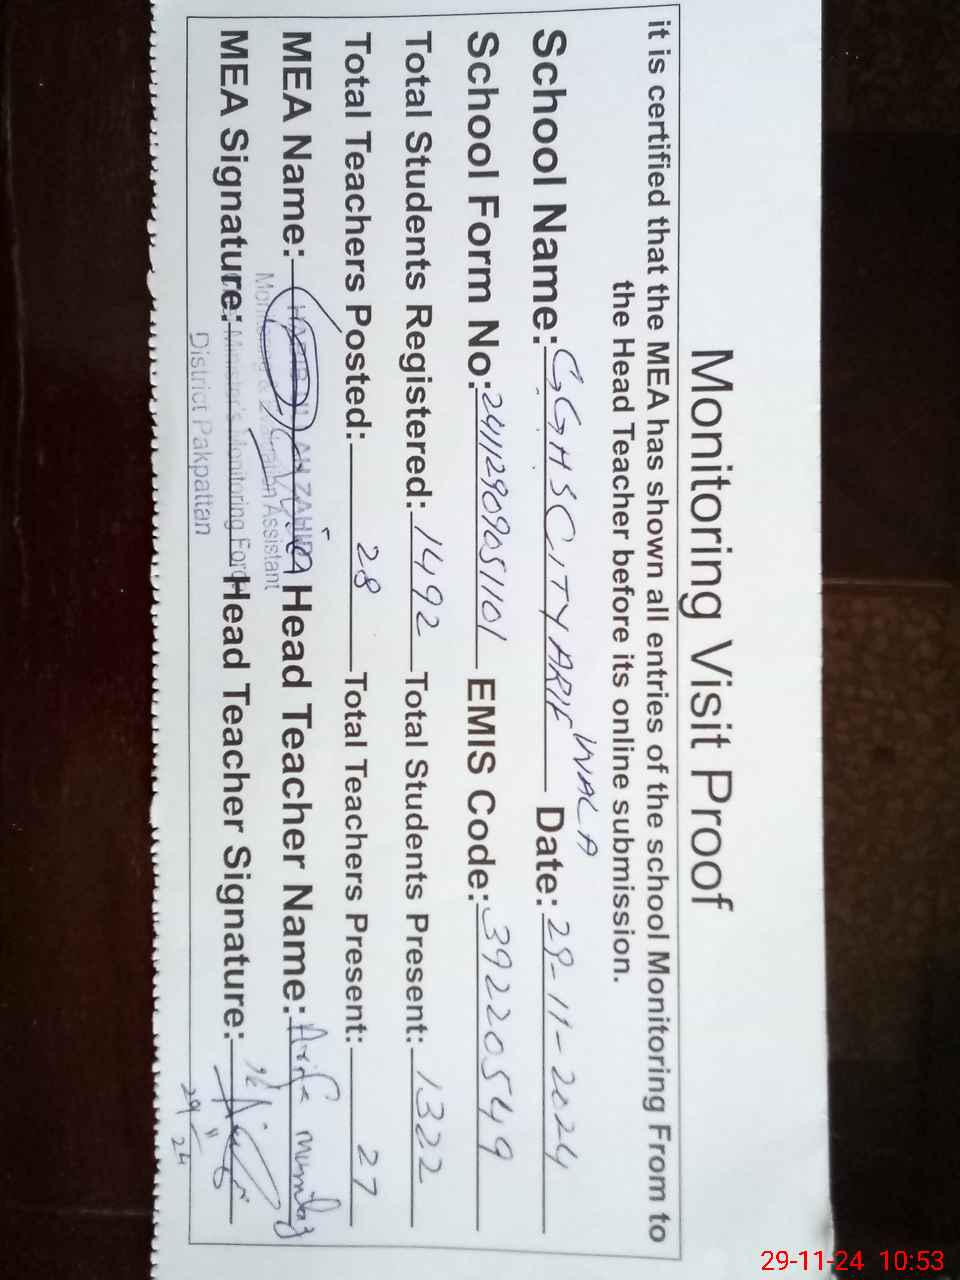 Monitoring Visit Proof
it is certified that the MEA has shown all entries of the school Monitoring From to
the Head Teacher before its online submission.
School Name: GGHSCITY ARIF WALA Date: 29-11-2024
School Form No: 24112909051101 EMIS Code: 39220549
Total Students Registered: 1492 Total Students Present: 1322
Total Teachers Posted: 28 Total Teachers Present: 27
MEA Name: Head Teacher Name: Arifa mumtaz
Monitoring & Assistant
MEA Signature: Head Teacher Signature:
Monitoring Force
District Pakpattan
29/11/24
29-11-24 10:53